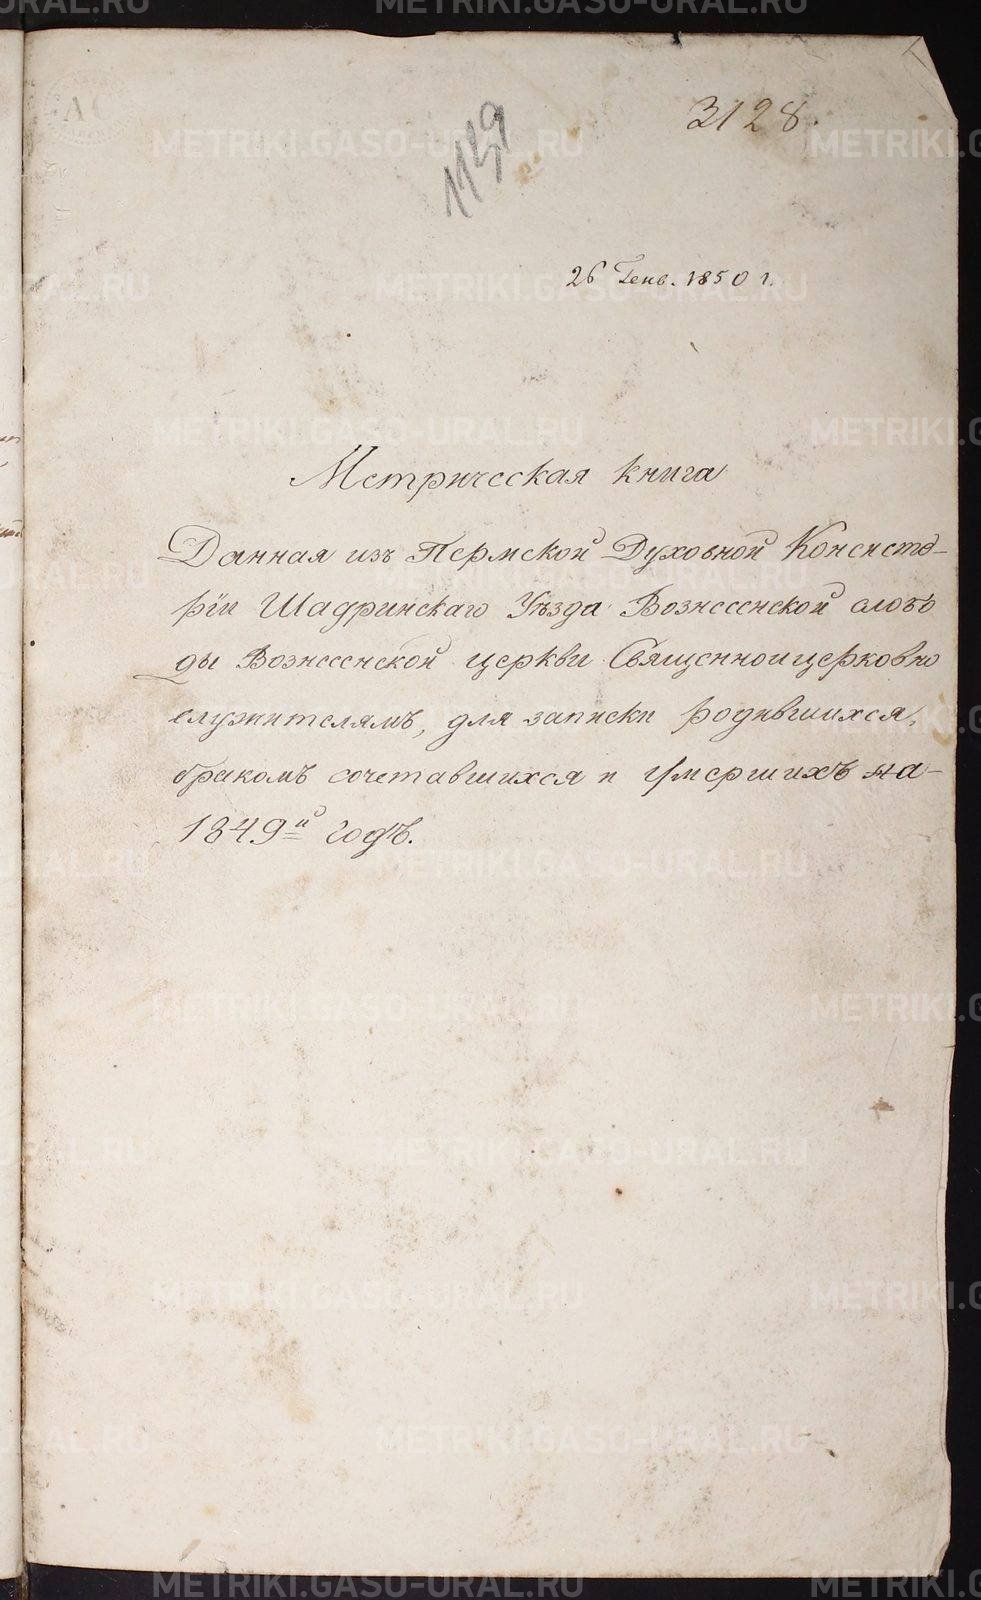 3128.
1139
26 Генв. 1850 г.
Метрическая книга
Данная изъ Пермской Духовной Консисто-
рїи Шадринскаго Уѣзда Вознесенской слобо
ды Вознесенской церкви Священноицерковно
служителямъ, для записки родившихся,
бракомъ сочетавшихся и умершихъ на-
1849й годъ.
METRIKI.GASO-URAL.RU